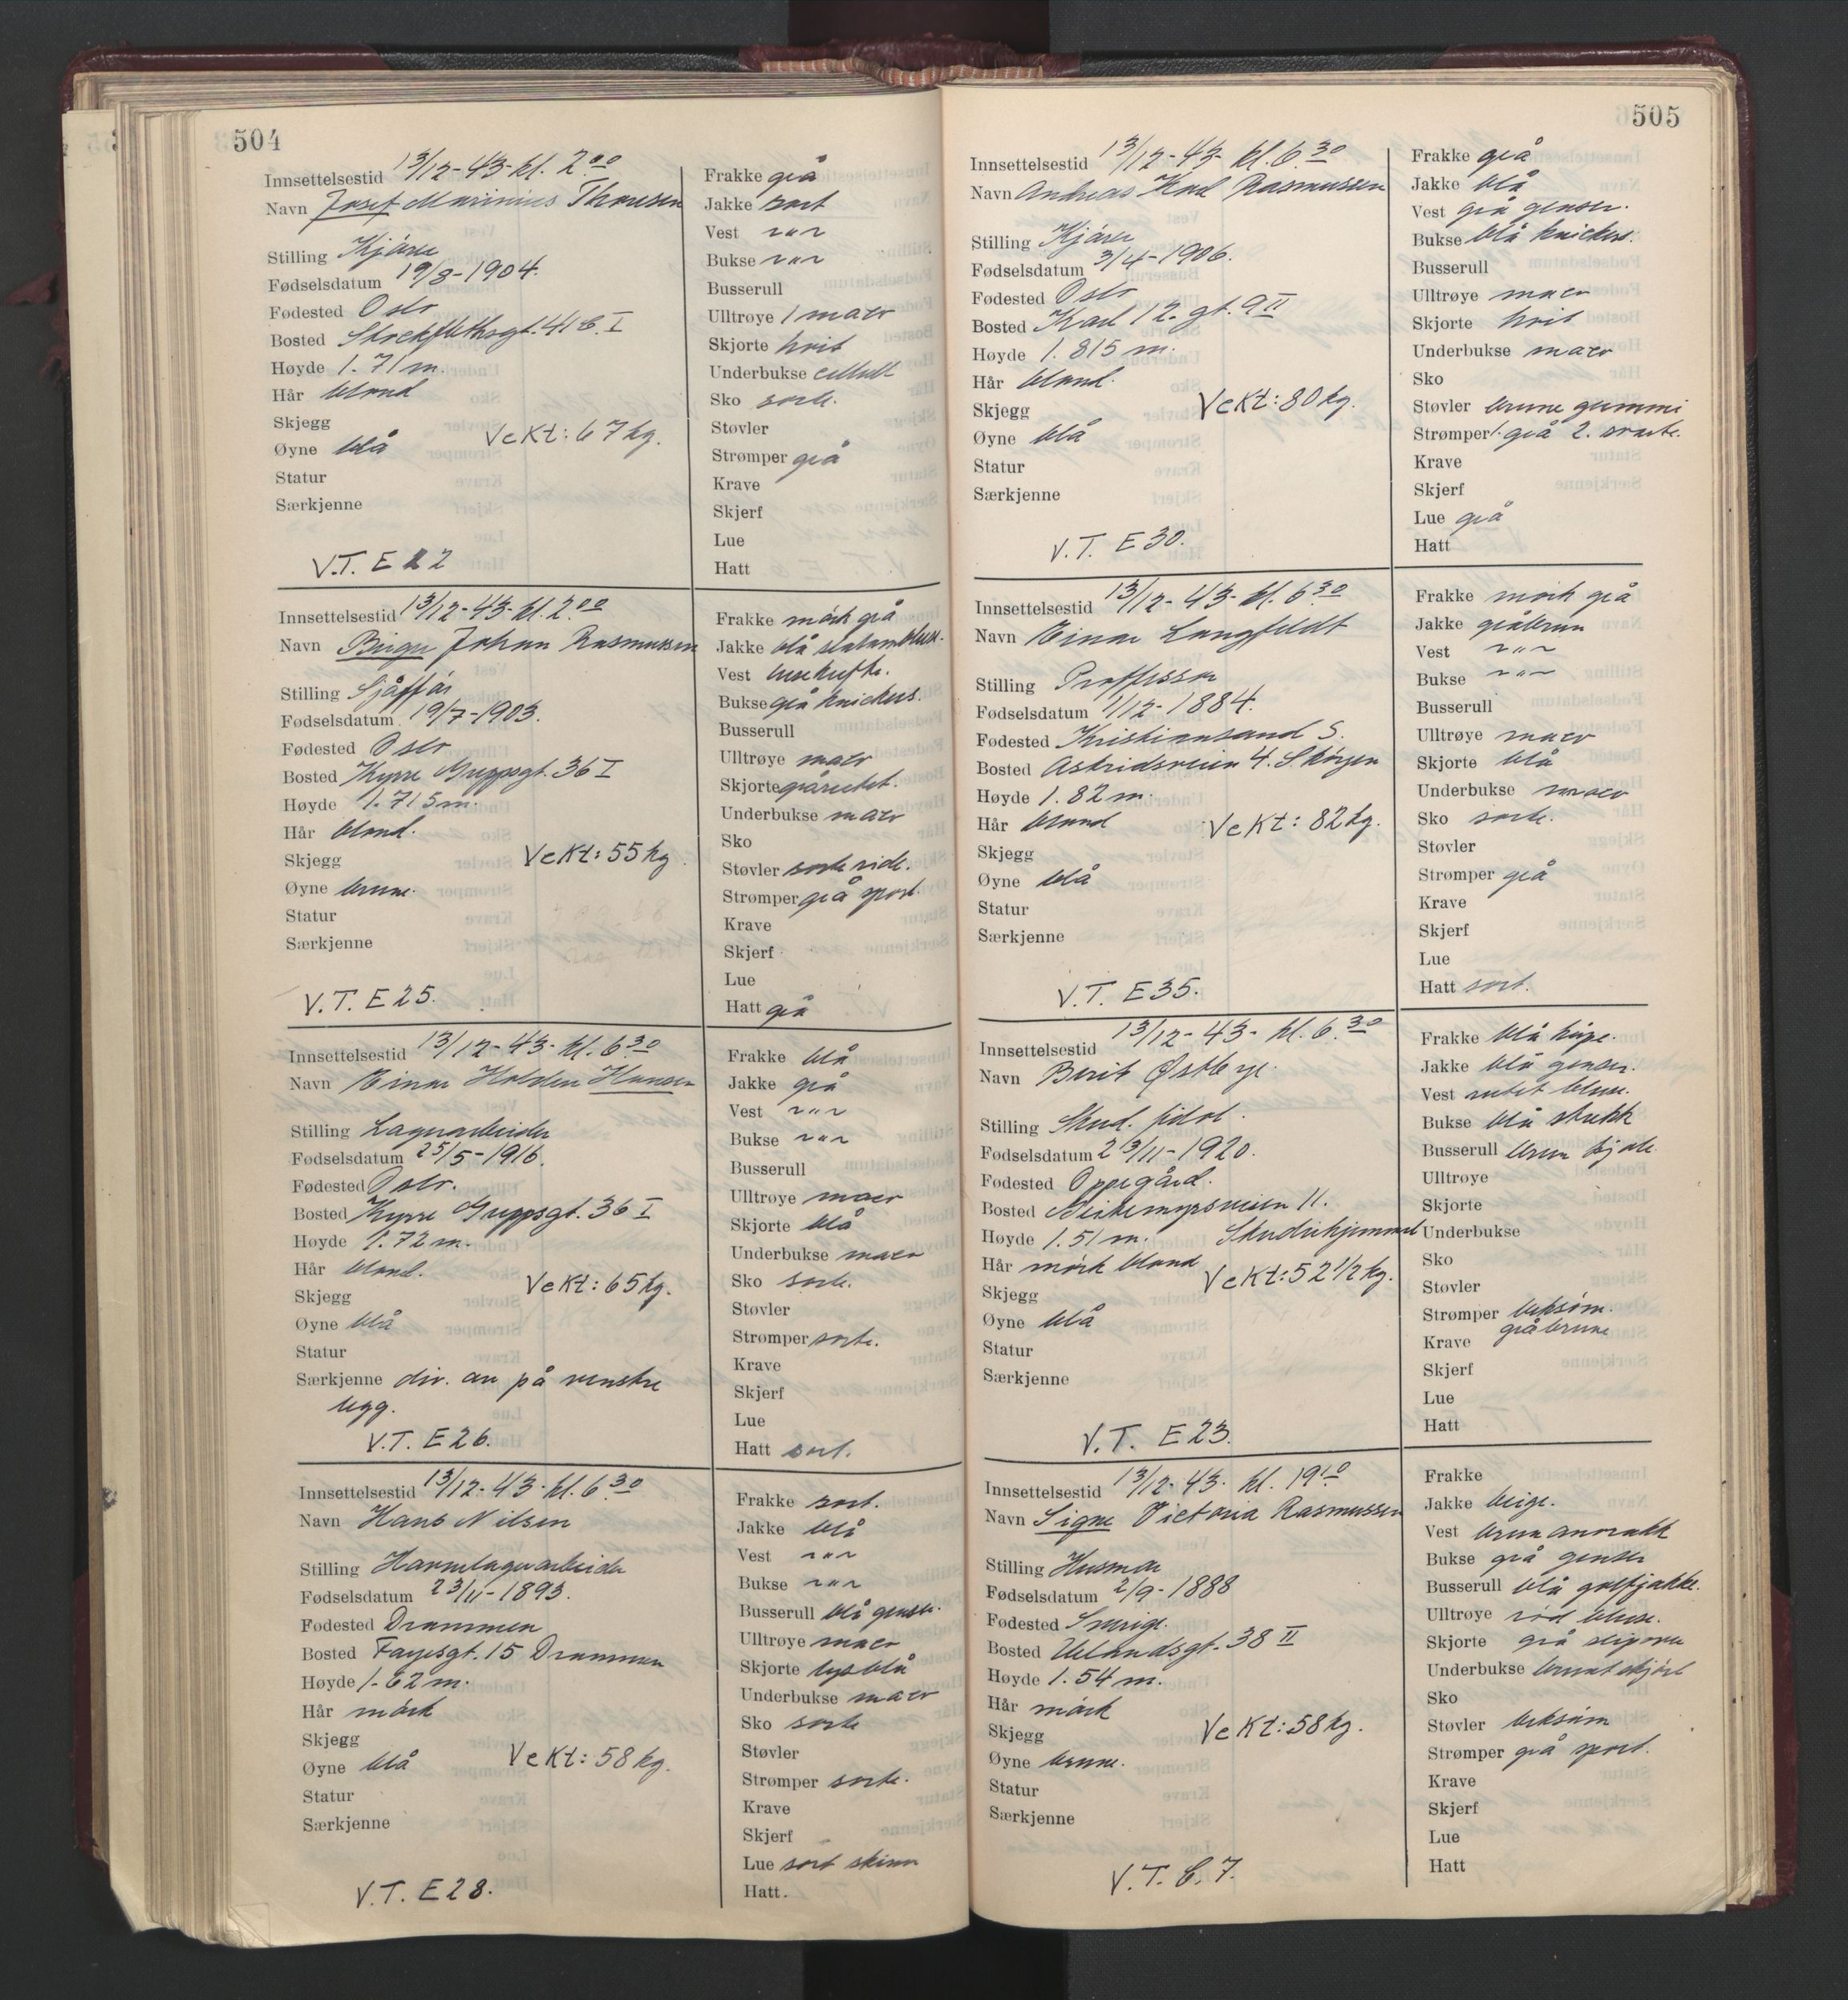 504
Innsettelsestid 13/12-43- kl. 2.00
Navn Josef Marinius Thoresen
Stilling Kjører
Fødselsdatum 19/8-1904.
Fødested Oslo
Bosted Stockflethsgt. 41 I
Høyde 1.71 m.
Hår blond
Skjegg
Vekt: 67 kg.
Øyne blå
Statur
Særkjenne
V.T. E 22
Frakke grå
Jakke sort
Vest -"-
Bukse -"-
Busserull
Ulltrøye 1 maco
Skjorte hvit
Underbukse cellull
Sko sorte.
Støvler
Strømper grå
Krave
Skjerf
Lue
Hatt
Innsettelsestid 13/12-43- kl. 2.00
Navn Birger Johan Rasmussen
Stilling Sjåffør
Fødselsdatum 19/7-1903.
Fødested Oslo
Bosted Kyrre Greppsgt. 36 I
Høyde 1.715 m.
Hår blond.
Skjegg
Vekt: 55 kg.
Øyne brune.
Statur
Særkjenne
V.T. E 25.
Frakke mørk grå
Jakke blå slalambluse.
Vest lusekufte.
Bukse grå knickers.
Busserull
Ulltrøye maco
Skjorte gårutet.
Underbukse maco
Sko
Støvler sorte ride.
Strømper grå sport
Krave
Skjerf
Lue
Hatt grå
Innsettelsestid 13/12-43- kl. 6.30
Navn Einar Halden Hansen
Stilling Lagerarbeider
Fødselsdatum 25/5-1916.
Fødested Oslo.
Bosted Kyrre Greppsgt. 36 I
Høyde 1.72 m.
Hår blond.
Skjegg
Vekt: 65 kg.
Øyne blå
Statur
Særkjenne div. arr på venstre
legg.
V.T. E 26.
Frakke blå
Jakke grå
Vest -"-
Bukse -"-
Busserull
Ulltrøye maco
Skjorte blå
Underbukse maco
Sko sorte.
Støvler
Strømper sorte.
Krave
Skjerf
Lue
Hatt sort.
Innsettelsestid 13/12-43- kl. 6.30
Navn Hans Nilsen
Stilling Havnelagerarbeider
Fødselsdatum 23/11-1893.
Fødested Drammen
Bosted Fayesgt. 15 Drammen
Høyde 1-62 m.
Hår mørk
Skjegg
Øyne blå
Vekt: 58 kg.
Statur
Særkjenne
V.T. E 28.
Frakke sort.
Jakke blå
Vest -"-
Bukse -"-
Busserull blå genser.
Ulltrøye maco
Skjorte lysblå
Underbukse maco
Sko sorte
Støvler
Strømper sorte.
Krave
Skjerf
Lue sort skinn
Hatt.
505
Innsettelsestid 13/12-43- kl. 6.30
Navn Andreas Karl Rasmussen
Stilling Kjører
Fødselsdatum 3/4-1906.
Fødested Oslo
Bosted Karl 12. gt. 9 II
Høyde 1.815 m.
Hår blond.
Skjegg
Vekt: 80 kg.
Øyne blå
Statur
Særkjenne
V.T. E 30.
Frakke grå
Jakke blå
Vest grå genser.
Bukse blå knickers.
Busserull
Ulltrøye maco
Skjorte hvit
Underbukse maco
Sko
Støvler brune gummi
Strømper 1. grå 2. svarte.
Krave
Skjerf
Lue grå
Hatt
Innsettelsestid 13/12-43- kl. 6.30
Navn Einar Langfeldt
Stilling Proffessor
Fødselsdatum 1/12-1884.
Fødested Kristiansand S.
Bosted Astridsveien 4. Skøyen
Høyde 1.82 m.
Hår blond
Vekt: 82 kg.
Skjegg
Øyne blå
Statur
Særkjenne
V.T. E 35.
Frakke mørk grå
Jakke gråbrun
Vest -"-
Bukse -"-
Busserull
Ulltrøye maco
Skjorte blå
Underbukse maco
Sko sorte.
Støvler
Strømper grå
Krave
Skjerf
Lue
Hatt sort.
Innsettelsestid 13/12-43- kl. 6.30
Navn Berit Østbye.
Stilling Stud. filol.
Fødselsdatum 23/11-1920.
Fødested Oppegård.
Bosted Birkemyrsveien 11.
Høyde 1.51 m. Studinhjemmet
Hår mørk blond
Vekt: 52 1/2 kg.
Skjegg
Øyne blå
Statur
Særkjenne
V.T. E 23.
Frakke blå kåpe.
Jakke blå genser.
Vest rutet bluse.
Bukse blå strikk
Busserull brun kjole.
Ulltrøye
Skjorte
Underbukse
Sko
Støvler
Strømper beksøm.
gråbrune
Krave
Skjerf
Lue
Hatt
Innsettelsestid 13/12-43- kl. 19.10
Navn Signe Victoria Rasmussen
Stilling Husmor
Fødselsdatum 2/9-1888
Fødested Sverige.
Bosted Uelandsgt. 38 II
Høyde 1.54 m.
Hår mørk
Skjegg
Vekt: 58 kg.
Øyne brune.
Statur
Særkjenne
V.T. C. 7.
Frakke
Jakke beige.
Vest brun anorakk
Bukse grå genser
Busserull blå golfjakke.
Ulltrøye rød bluse.
Skjorte grå
Underbukse brunt skjørt
Sko
Støvler beksøm
Strømper grå sport.
Krave
Skjerf
Lue
Hatt